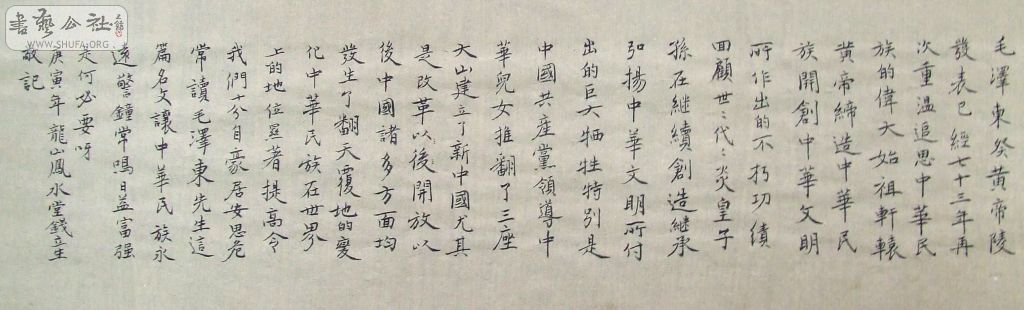 毛澤東祭黄帝陵
發表已經七十三年再
次重温追思中華民
族的偉大始祖軒轅
黄帝締造中華民
族開創中華文明
所作出的不朽功績
回顧世〻代〻炎皇子
孫在継續創造継承
弘揚中华文明所付
出的巨大牺牲特别是
中國共産黨領導中
華兒女推翻了三座
大山建立了新中國尤其
是改革以後開放以
後中國諸多方面均
發生了翻天覆地的變
化中華民族在世界
上的地位显著提高令
我們十分自豪居安思危
常讀毛澤東先生這
篇名文讓中华民族永
遠警鐘常鳴日益富强
是何必要呀
庚寅年龍山鳳水堂錢
敬記
書藝公社
WWW.SHUFA.ORG